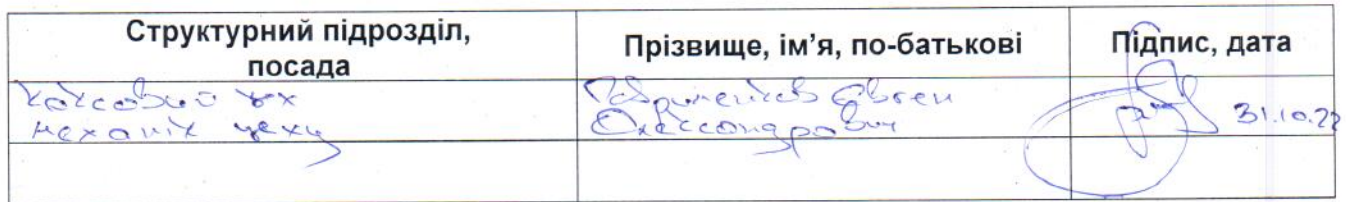 Структурний підрозділ,
посада
Прізвище, ім’я, по-батькові
Підпис, дата
коксовий цех
механік цеху
Євген
Олександрович
31.10.22